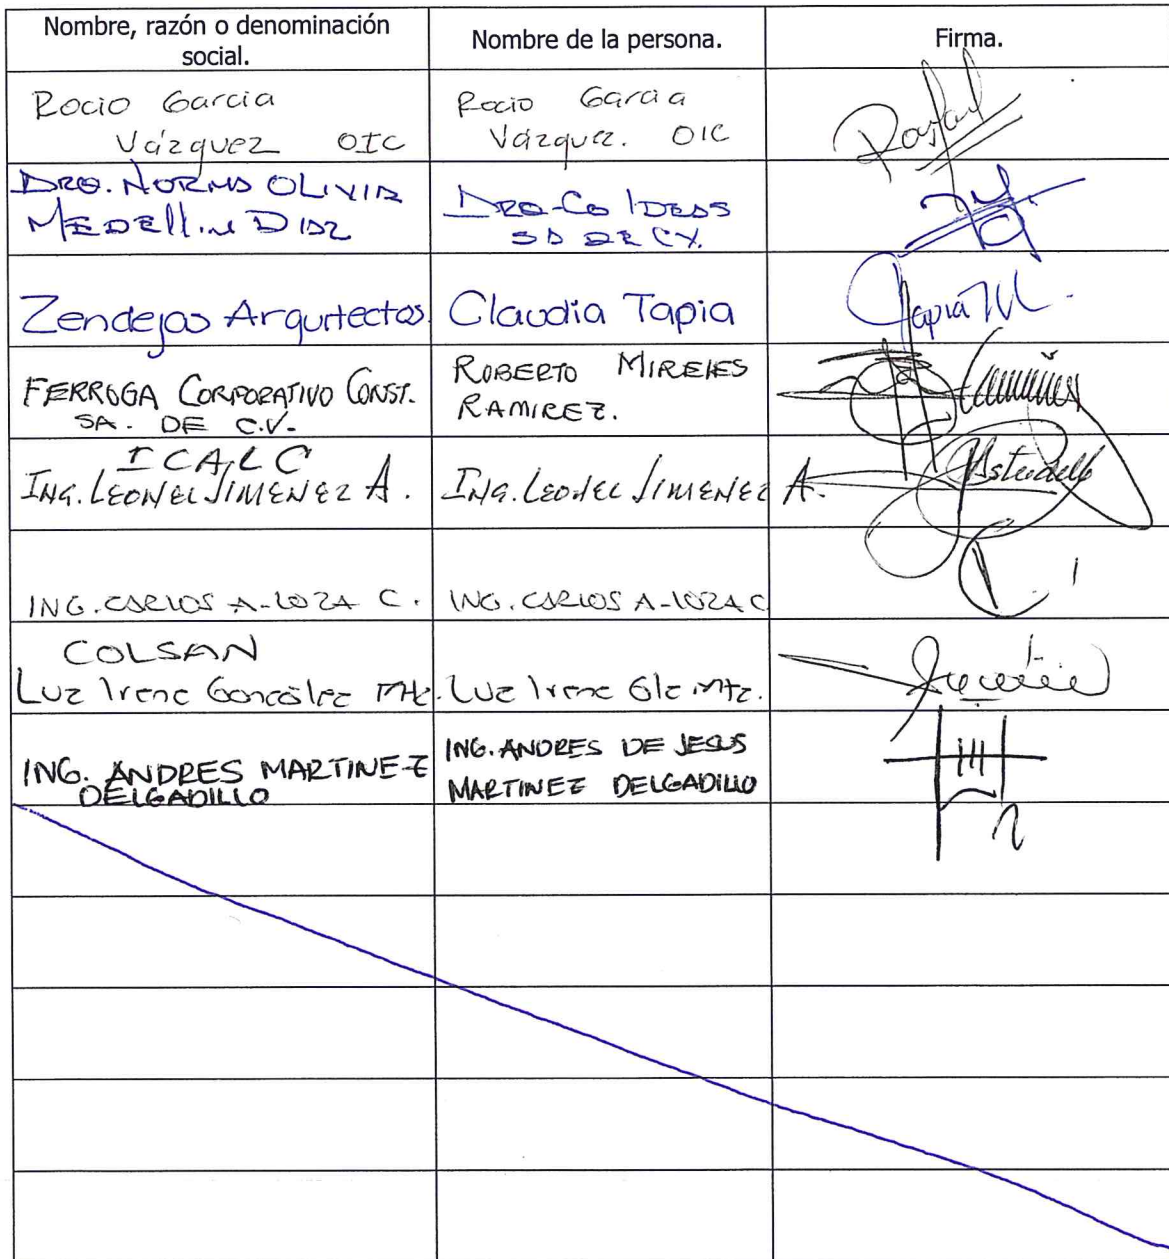 Nombre, razón o denominación
social.
Nombre de la persona.
Firma.
Rocio Garcia
Vázquez OIC
Rocio Garcia
Vázquez. OIC
DRO. NORMA OLIVIA
MEDELLIN DIAZ
DRO-CO IDEAS
SA DE CV.
Zendejas Arquitectos.
Claudia Tapia
Tapia M.
FERROGA CORPORATIVO CONST.
SA. DE C.V.
ROBERTO MIRELES
RAMIREZ.
ICALC
ING. LEONEL JIMENEZ A.
ING. LEONEL JIMENEZ A.
Astudillo
ING. CARLOS A-LOZA C.
ING. CARLOS A-LOZA C
COLSAN
Luz Irene González Mtz.
Luz Irene Glz Mtz.
ING. ANDRES MARTINEZ
DELGADILLO
ING. ANDRES DE JESUS
MARTINEZ DELGADILLO